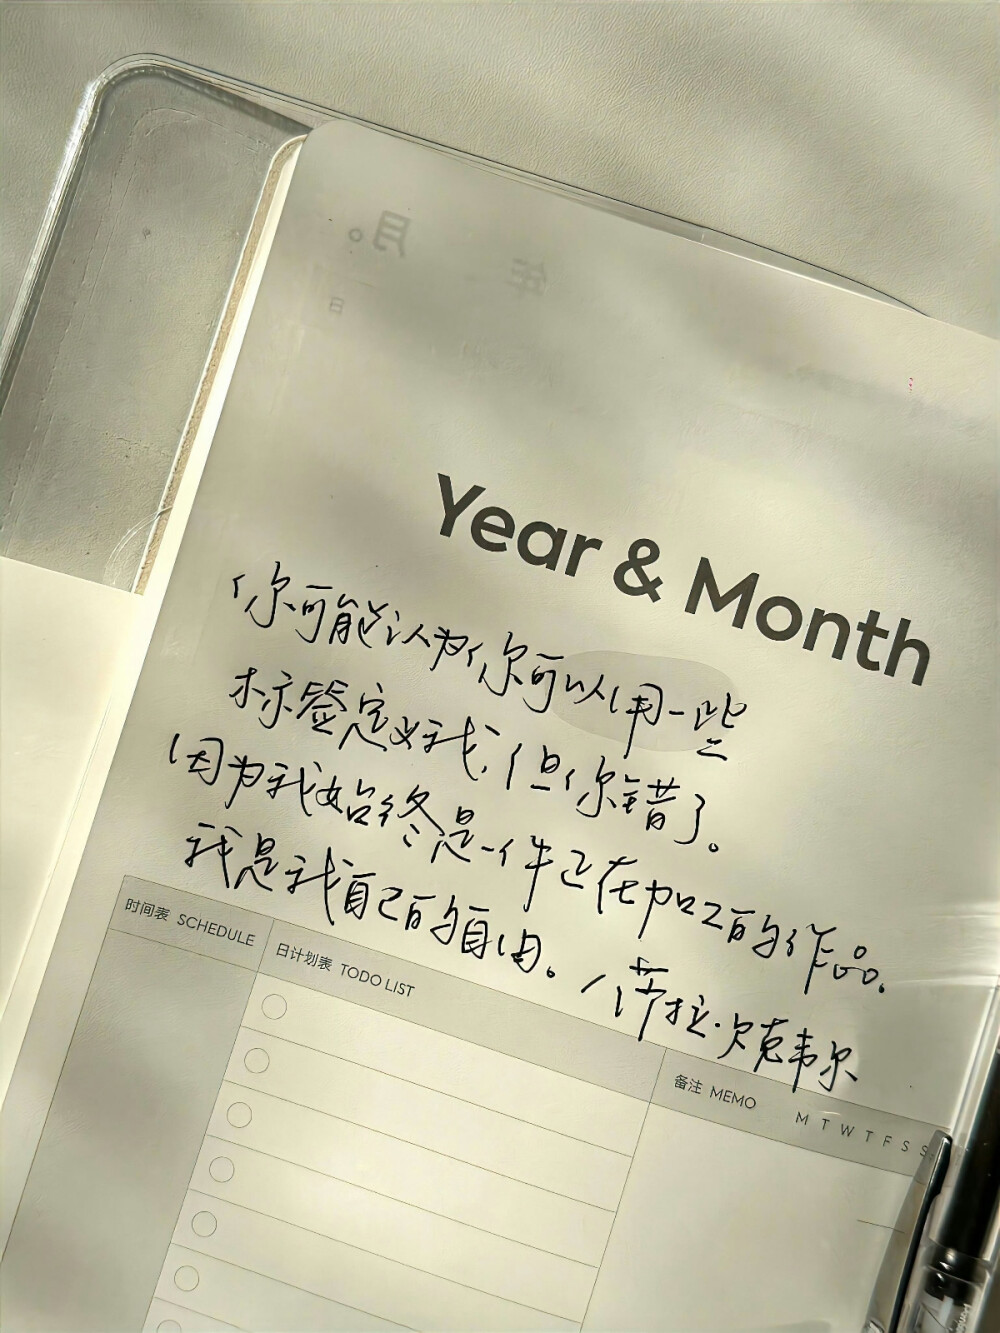 月。
年
日
Year & Month
你可能认为你可以用一些
标签定义我,但你错了。
因为我始终是一件正在加工的作品。
我是我自己的自由。/萨拉·贝克韦尔
时间表 SCHEDULE
日计划表 TODO LIST
备注 MEMO
M T W T F S S